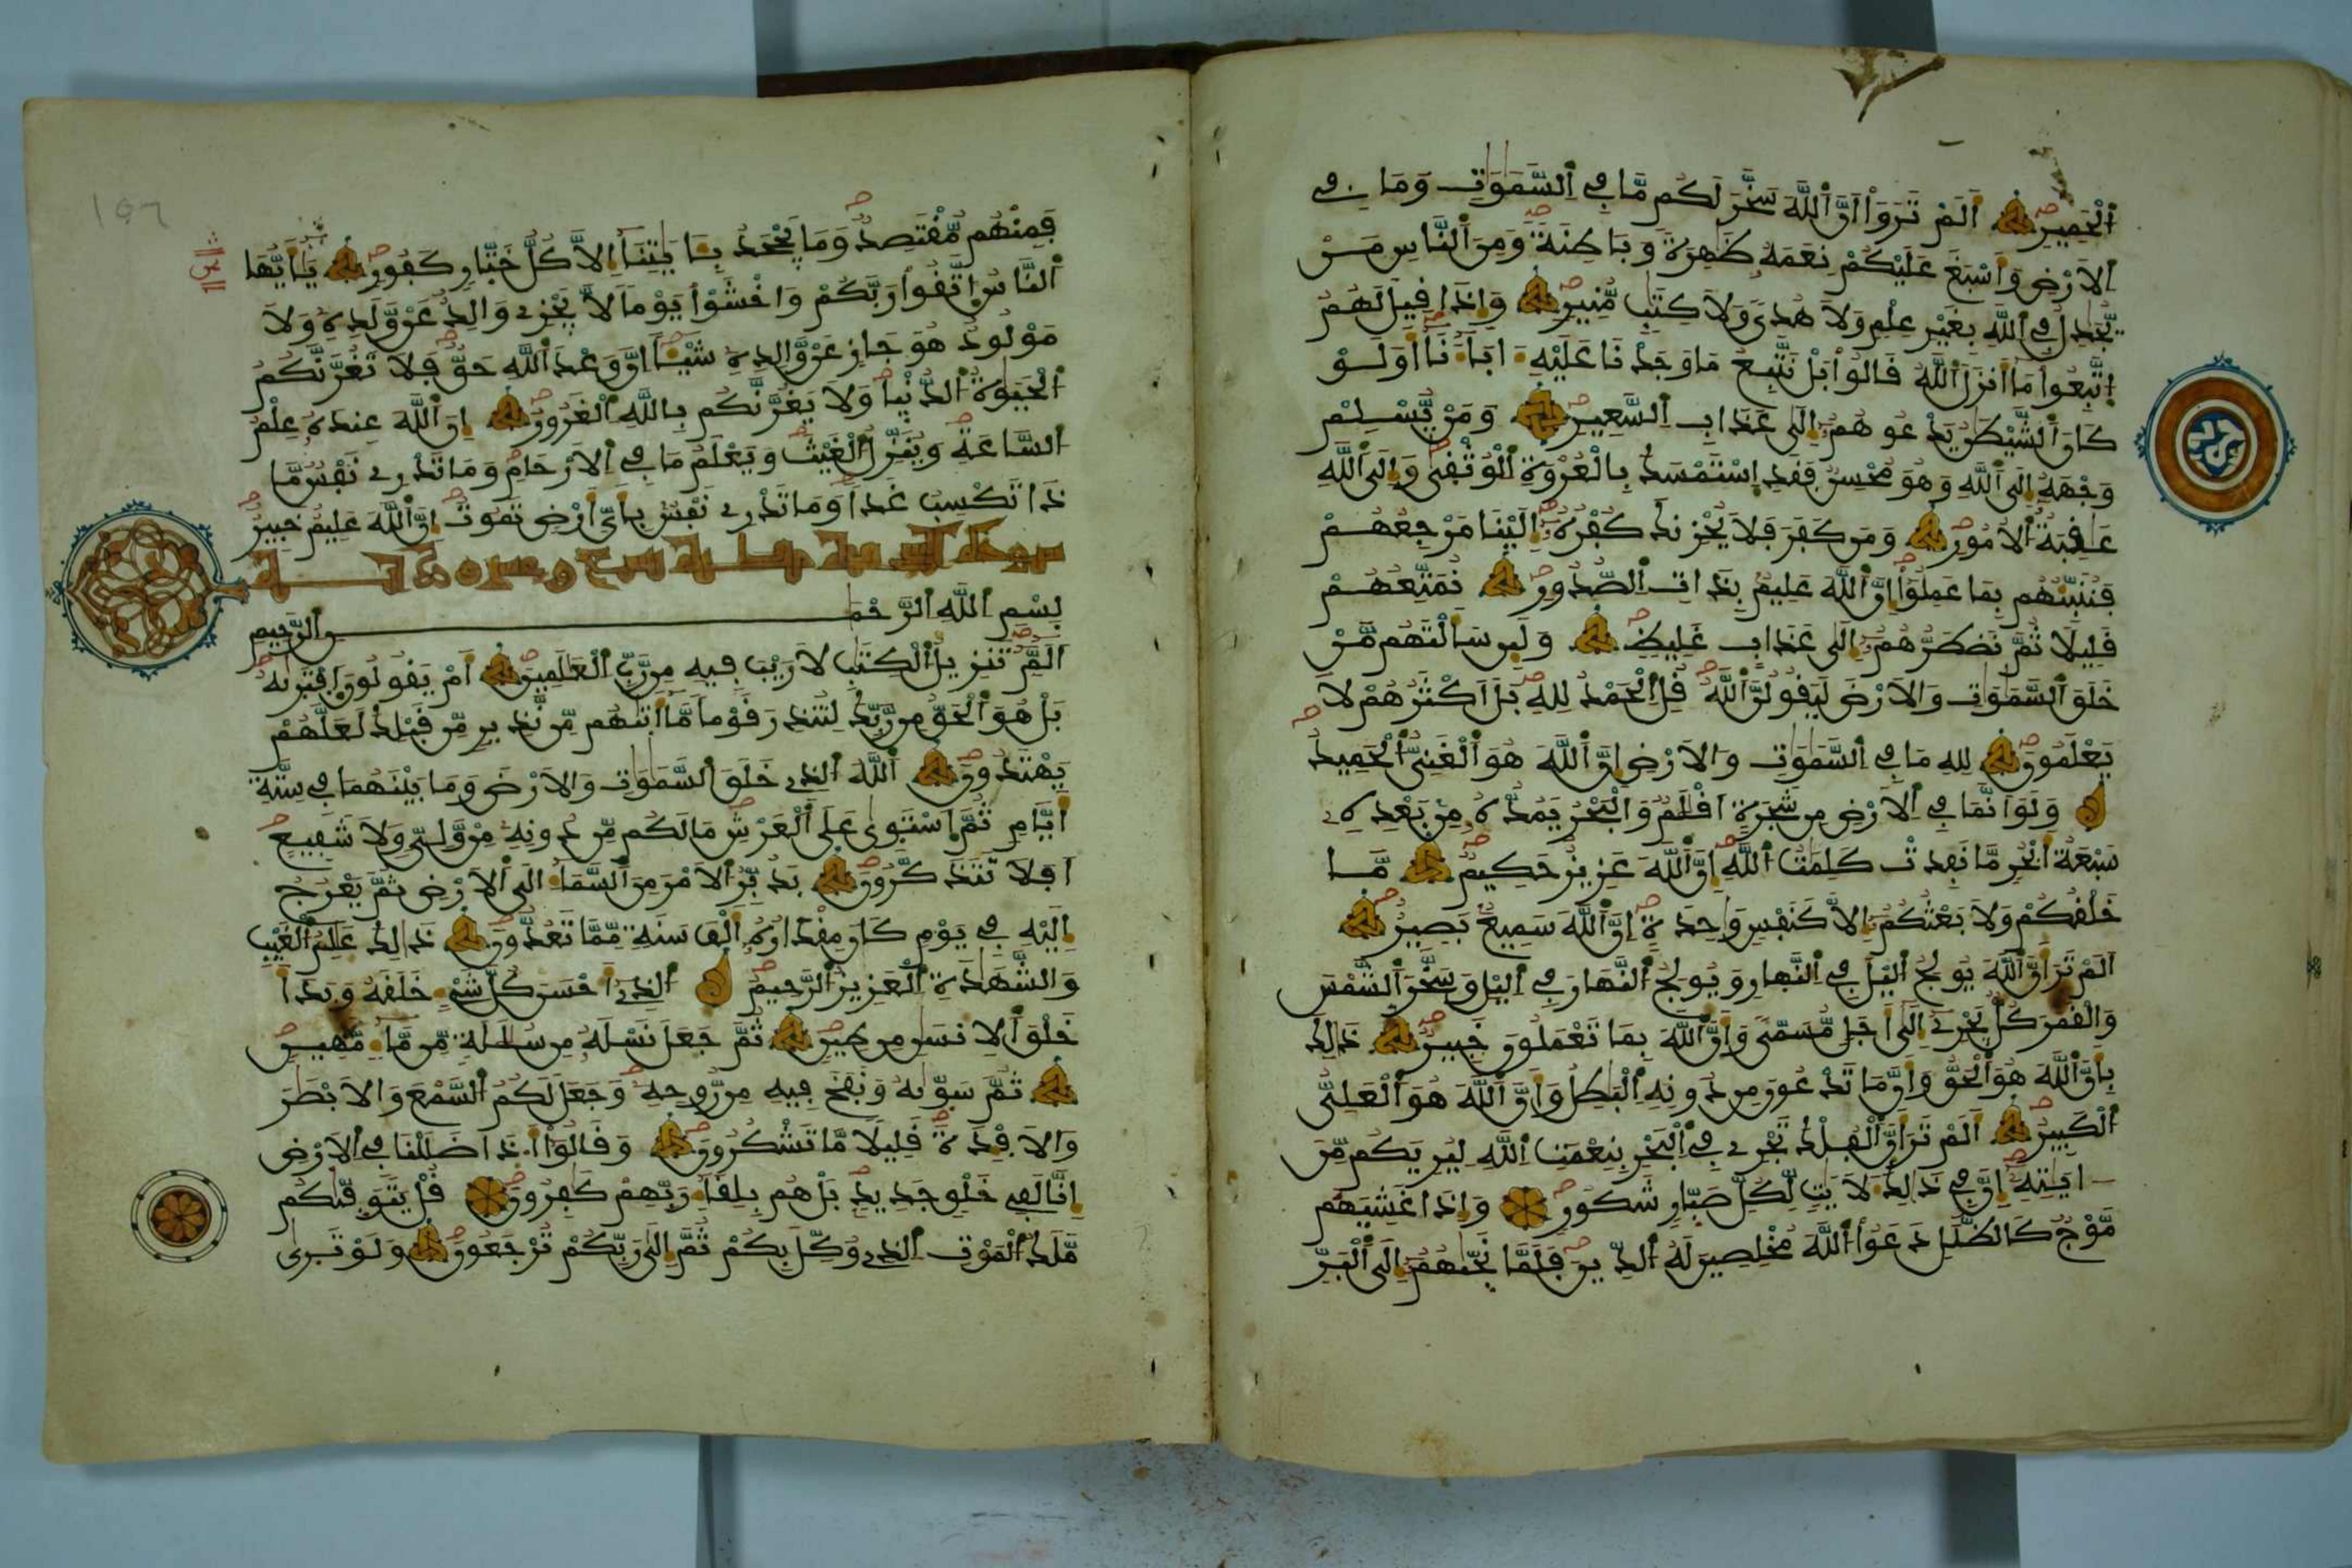 اَلْحَمِيرِ اَلَمْ تَرَوَاْ اَنَّ اَللَّهَ سَخَّرَ لَكُم مَّا فِے اِلسَّمَٰوَٰتِ وَمَا فِے
اِلَارْضِ وَأَسْبَغَ عَلَيْكُمْ نِعَمَهُ ظَٰهِرَةً وَبَاطِنَةً وَمِنَ اَلنَّاسِ مَنْ
يُّجَٰدِلُ فِے اِللَّهِ بِغَيْرِ عِلْمٍ وَلَا هُدىً وَلَا كِتَٰبٍ مُّنِيرٍ وَإِذَا قِيلَ لَهُمُ
اُتَّبِعُواْ مَا أَنزَلَ اَللَّهُ قَالُواْ بَلْ نَتَّبِعُ مَا وَجَدْنَا عَلَيْهِ ءَابَاءَنَا أَوَلَوْ
كَانَ اَلشَّيْطَٰنُ يَدْعُوهُمُ إِلَىٰ عَذَابِ اِلسَّعِيرِ وَمَنْ يُّسْلِمْ
وَجْهَهُ إِلَى اَللَّهِ وَهُوَ مُحْسِنٌ فَقَدِ اِسْتَمْسَكَ بِالْعُرْوَةِ اِلْوُثْقَىٰ وَإِلَى اَللَّهِ
عَٰقِبَةُ اُلُامُورِ وَمَن كَفَرَ فَلَا يُحْزِنكَ كُفْرُهُ إِلَيْنَا مَرْجِعُهُمْ
فَنُنَبِّئُهُم بِمَا عَمِلُواْ إِنَّ اَللَّهَ عَلِيمٌ بِذَاتِ اِلصُّدُورِ نُمَتِّعُهُمْ
قَلِيلًا ثُمَّ نَضْطَرُّهُمُ إِلَىٰ عَذَابٍ غَلِيظٍ وَلَئِن سَأَلْتَهُم مَّنْ
خَلَقَ اَلسَّمَٰوَٰتِ وَالَارْضَ لَيَقُولُنَّ اَللَّهُ قُلِ اِلْحَمْدُ لِلهِ بَلَ اَكْثَرُهُمْ لَا
يَعْلَمُونَ لِلهِ مَا فِے اِلسَّمَٰوَٰتِ وَالَارْضِ إِنَّ اَللَّهَ هُوَ اَلْغَنِيُّ اُلْحَمِيدُ
وَلَوَ اَنَّمَا فِے اِلَارْضِ مِن شَجَرَةٍ اَقْلَٰمٌ وَالْبَحْرُ يَمُدُّهُ مِنْ بَعْدِهِ
سَبْعَةُ أَبْحُرٍ مَّا نَفِدَتْ كَلِمَٰتُ اُللَّهِ إِنَّ اَللَّهَ عَزِيزٌ حَكِيمٌ مَّا
خَلْقُكُمْ وَلَا بَعْثُكُمُ إِلَّا كَنَفْسٍ وَٰحِدَةٍ إِنَّ اَللَّهَ سَمِيعٌ بَصِيرٌ
اَلَمْ تَرَ أَنَّ اَللَّهَ يُولِجُ اُليْلَ فِے اِلنَّهَارِ وَيُولِجُ اُلنَّهَارَ فِے اِليْلِ وَسَخَّرَ اَلشَّمْسَ
وَالْقَمَرَ كُلٌّ يَجْرِے إِلَىٰ أَجَلٍ مُّسَمّىً وَأَنَّ اَللَّهَ بِمَا تَعْمَلُونَ خَبِيرٌ ذَٰلِكَ
بِأَنَّ اَللَّهَ هُوَ اَلْحَقُّ وَأَنَّ مَا تَدْعُونَ مِن دُونِهِ اِلْبَٰطِلُ وَأَنَّ اَللَّهَ هُوَ اَلْعَلِيُّ
اُلْكَبِيرُ اَلَمْ تَرَ أَنَّ اَلْفُلْكَ تَجْرِے فِے اِلْبَحْرِ بِنِعْمَتِ اِللَّهِ لِيُرِيَكُم مِّنَ
ءَايَٰتِهِ إِنَّ فِے ذَٰلِكَ لَأٓيَٰتٍ لِّكُلِّ صَبَّارٍ شَكُورٍ وَإِذَا غَشِيَهُم
مَّوْجٌ كَالظُّلَلِ دَعَوُاْ اُللَّهَ مُخْلِصِينَ لَهُ اُلدِّينَ فَلَمَّا نَجَّىٰهُمُ إِلَى اَلْبَرِّ
فَمِنْهُم مُّقْتَصِدٌ وَمَا يَجْحَدُ بِـَٔايَٰتِنَا إِلَّا كُلُّ خَتَّارٍ كَفُورٍ يَٰأَيُّهَا
اَلنَّاسُ اُتَّقُواْ رَبَّكُمْ وَاخْشَوْاْ يَوْماً لَّا يَجْزِے وَالِدٌ عَنْ وَّلَدِهِ وَلَا
مَوْلُودٌ هُوَ جَازٍ عَنْ وَّالِدِهِ شَيْـًٔا إِنَّ وَعْدَ اَللَّهِ حَقٌّ فَلَا تَغُرَّنَّكُمُ
اُلْحَيَوٰةُ اُلدُّنْيَا وَلَا يَغُرَّنَّكُم بِاللَّهِ اِلْغَرُورُ إِنَّ اَللَّهَ عِندَهُ عِلْمُ
اُلسَّاعَةِ وَيُنَزِّلُ اُلْغَيْثَ وَيَعْلَمُ مَا فِے اِلَارْحَامِ وَمَا تَدْرِے نَفْسٌ مَّا
ذَا تَكْسِبُ غَداً وَمَا تَدْرِے نَفْسٌ بِأَيِّ أَرْضٍ تَمُوتُ إِنَّ اَللَّهَ عَلِيمٌ خَبِيرٌ
بِسْمِ اِللَّهِ اِلرَّحْمَٰنِ اِلرَّحِيمِ
أَلَمِّ تَنزِيلُ اُلْكِتَٰبِ لَا رَيْبَ فِيهِ مِن رَّبِّ اِلْعَٰلَمِينَ أَمْ يَقُولُونَ اَفْتَرَىٰهُ
بَلْ هُوَ اَلْحَقُّ مِن رَّبِّكَ لِتُنذِرَ قَوْماً مَّا أَتَىٰهُم مِّن نَّذِيرٍ مِّن قَبْلِكَ لَعَلَّهُمْ
يَهْتَدُونَ اَللَّهُ اُلذِے خَلَقَ اَلسَّمَٰوَٰتِ وَالَارْضَ وَمَا بَيْنَهُمَا فِے سِتَّةِ
أَيَّامٍ ثُمَّ اَسْتَوَىٰ عَلَى اَلْعَرْشِ مَا لَكُم مِّن دُونِهِ مِنْ وَّلِيٍّ وَلَا شَفِيعٍ
اَفَلَا تَتَذَكَّرُونَ يُدَبِّرُ اُلَامْرَ مِنَ اَلسَّمَاءِ إِلَى اَلَارْضِ ثُمَّ يَعْرُجُ
إِلَيْهِ فِے يَوْمٍ كَانَ مِقْدَارُهُ أَلْفَ سَنَةٍ مِّمَّا تَعُدُّونَ ذَٰلِكَ عَٰلِمُ اُلْغَيْبِ
وَالشَّهَٰدَةِ اِلْعَزِيزُ اُلرَّحِيمُ اُلذِے أَحْسَنَ كُلَّ شَےْءٍ خَلَقَهُ وَبَدَأَ
خَلْقَ اَلِانسَٰنِ مِن طِينٍ ثُمَّ جَعَلَ نَسْلَهُ مِن سُلَٰلَةٍ مِّن مَّاءٍ مَّهِينٍ
ثُمَّ سَوَّىٰهُ وَنَفَخَ فِيهِ مِن رُّوحِهِ وَجَعَلَ لَكُمُ اُلسَّمْعَ وَالَابْصَٰرَ
وَالَافْـِٕدَةَ قَلِيلًا مَّا تَشْكُرُونَ وَقَالُواْ أَ.ذَا ضَلَلْنَا فِے اِلَارْضِ
إِنَّا لَفِے خَلْقٍ جَدِيدٍ بَلْ هُم بِلِقَاءِ رَبِّهِمْ كَٰفِرُونَ قُلْ يَتَوَفَّىٰكُم
مَّلَكُ اُلْمَوْتِ اِلذِے وُكِّلَ بِكُمْ ثُمَّ إِلَىٰ رَبِّكُمْ تُرْجَعُونَ وَلَوْ تَرَىٰ